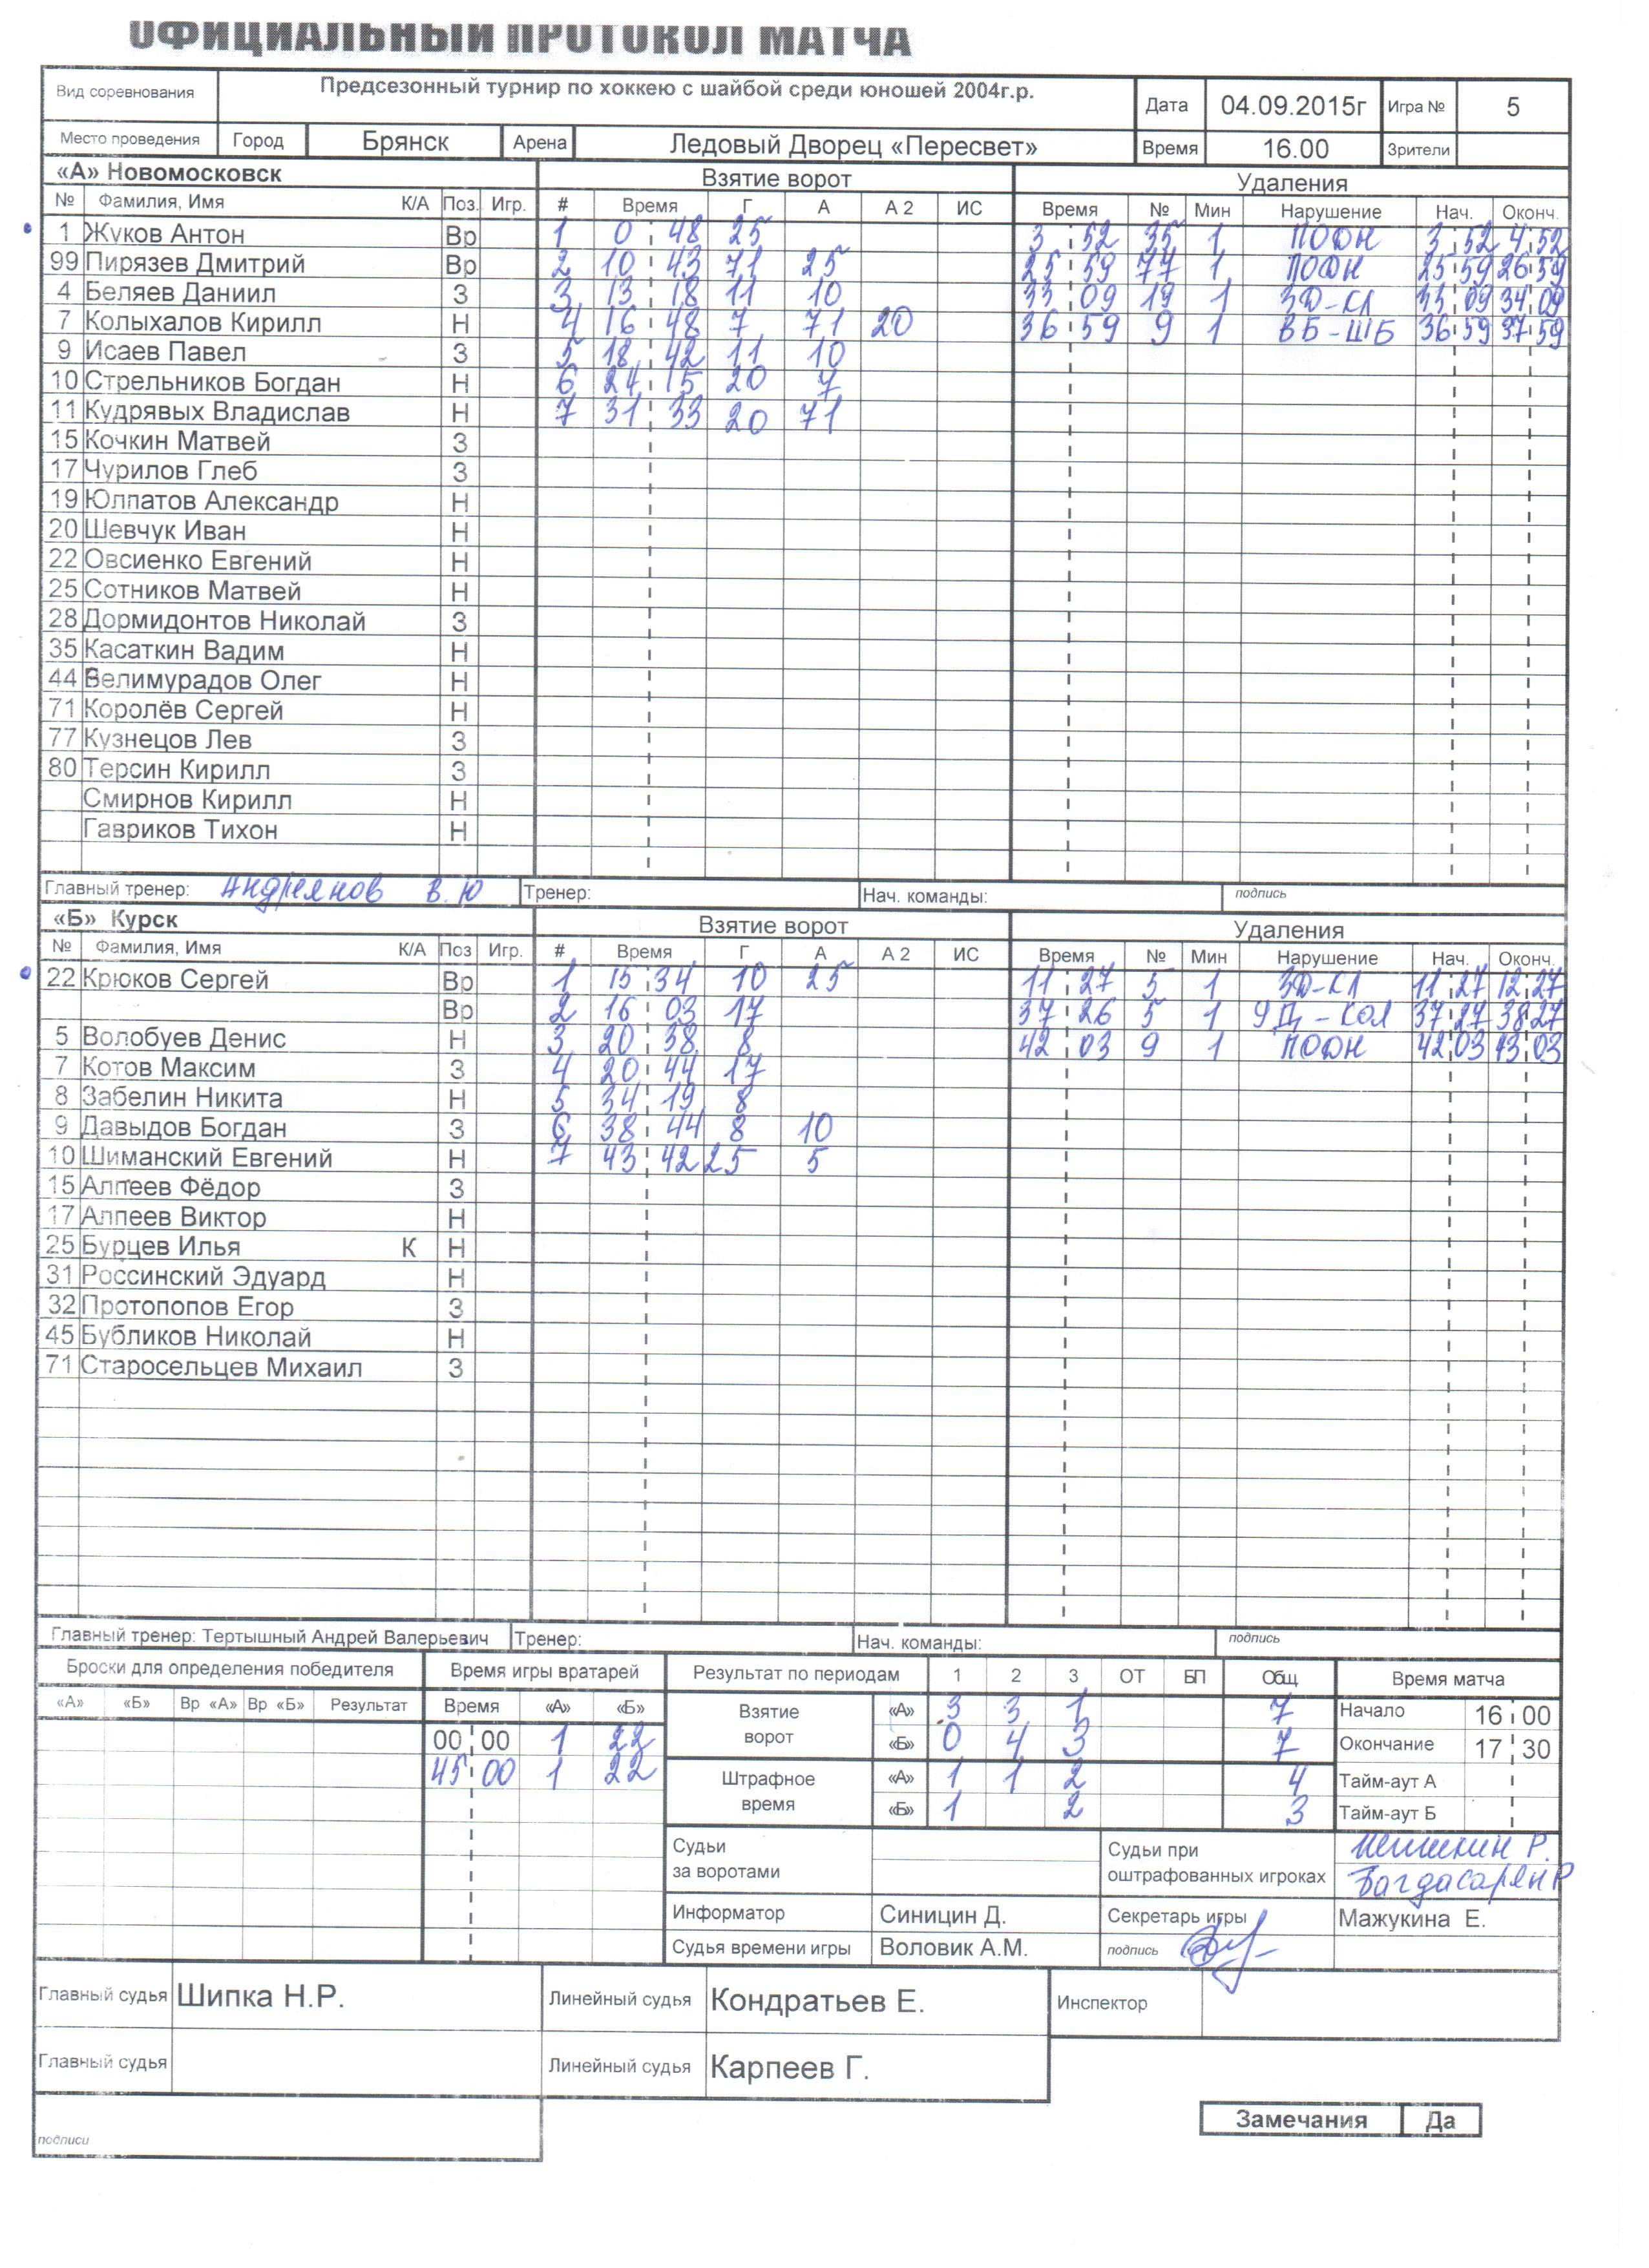 ОФИЦИАЛЬНЫЙ ПРОТОКОЛ МАТЧА
Вид соревнования Предсезонный турнир по хоккею с шайбой среди юношей 2004г.р. Дата 04.09.2015г Игра № 5
Место проведения Город Брянск Арена Ледовый Дворец «Пересвет» Время 16.00 Зрители
«А» Новомосковск Взятие ворот Удаления
№ Фамилия, Имя К/А Поз. Игр. # Время Г А А 2 ИС Время № Мин Нарушение Нач. Оконч.
1 Жуков Антон Вр 1 0 48 25 3 52 35 1 ПОДН 3 52 4 52
99 Пирязев Дмитрий Вр 2 10 43 71 25 25 59 77 1 ПОДН 25 59 26 59
4 Беляев Даниил З 3 13 18 11 10 33 09 19 1 ЗД-КЛ 33 09 34 09
7 Колыхалов Кирилл Н 4 16 48 7 71 20 36 59 9 1 ВБ-ШБ 36 59 37 59
9 Исаев Павел З 5 18 42 11 10
10 Стрельников Богдан Н 6 24 15 20 7
11 Кудрявых Владислав Н 7 31 33 20 71
15 Кочкин Матвей З
17 Чурилов Глеб З
19 Юлпатов Александр Н
20 Шевчук Иван Н
22 Овсиенко Евгений Н
25 Сотников Матвей Н
28 Дормидонтов Николай З
35 Касаткин Вадим Н
44 Велимурадов Олег Н
71 Королёв Сергей Н
77 Кузнецов Лев З
80 Терсин Кирилл З
Смирнов Кирилл Н
Гавриков Тихон Н
Главный тренер: Андреянов В.Ю Тренер: Нач. команды: подпись
«Б» Курск Взятие ворот Удаления
№ Фамилия, Имя К/А Поз Игр. # Время Г А А 2 ИС Время № Мин Нарушение Нач. Оконч.
22 Крюков Сергей Вр 1 15 34 10 25 11 27 5 1 ЗД-КЛ 11 27 12 27
Вр 2 16 03 17 37 26 5 1 УД-КОЛ 37 27 38 27
5 Волобуев Денис Н 3 20 38 8 42 03 9 1 ПОДН 42 03 43 03
7 Котов Максим З 4 20 44 17
8 Забелин Никита Н 5 34 19 8
9 Давыдов Богдан З 6 38 44 8 10
10 Шиманский Евгений Н 7 43 42 25 5
15 Алпеев Фёдор З
17 Алпеев Виктор Н
25 Бурцев Илья К Н
31 Россинский Эдуард Н
32 Протопопов Егор З
45 Бубликов Николай Н
71 Старосельцев Михаил З
Главный тренер: Тертышный Андрей Валерьевич Тренер: Нач. команды: подпись
Броски для определения победителя Время игры вратарей Результат по периодам 1 2 3 ОТ БП Общ Время матча
«А» «Б» Вр «А» Вр «Б» Результат Время «А» «Б» Взятие ворот «А» 3 3 1 7 Начало 16 00
00 00 1 22 «Б» 0 4 3 7 Окончание 17 30
45 00 1 22 Штрафное время «А» 1 1 2 4 Тайм-аут А
«Б» 1 2 3 Тайм-аут Б
Судьи за воротами Судьи при оштрафованных игроках
Багдасарян Р
Информатор Синицин Д. Секретарь игры Мажукина Е.
Судья времени игры Воловик А.М. подпись
Главный судья Шипка Н.Р. Линейный судья Кондратьев Е. Инспектор
Главный судья Линейный судья Карпеев Г.
Замечания Да
подписи